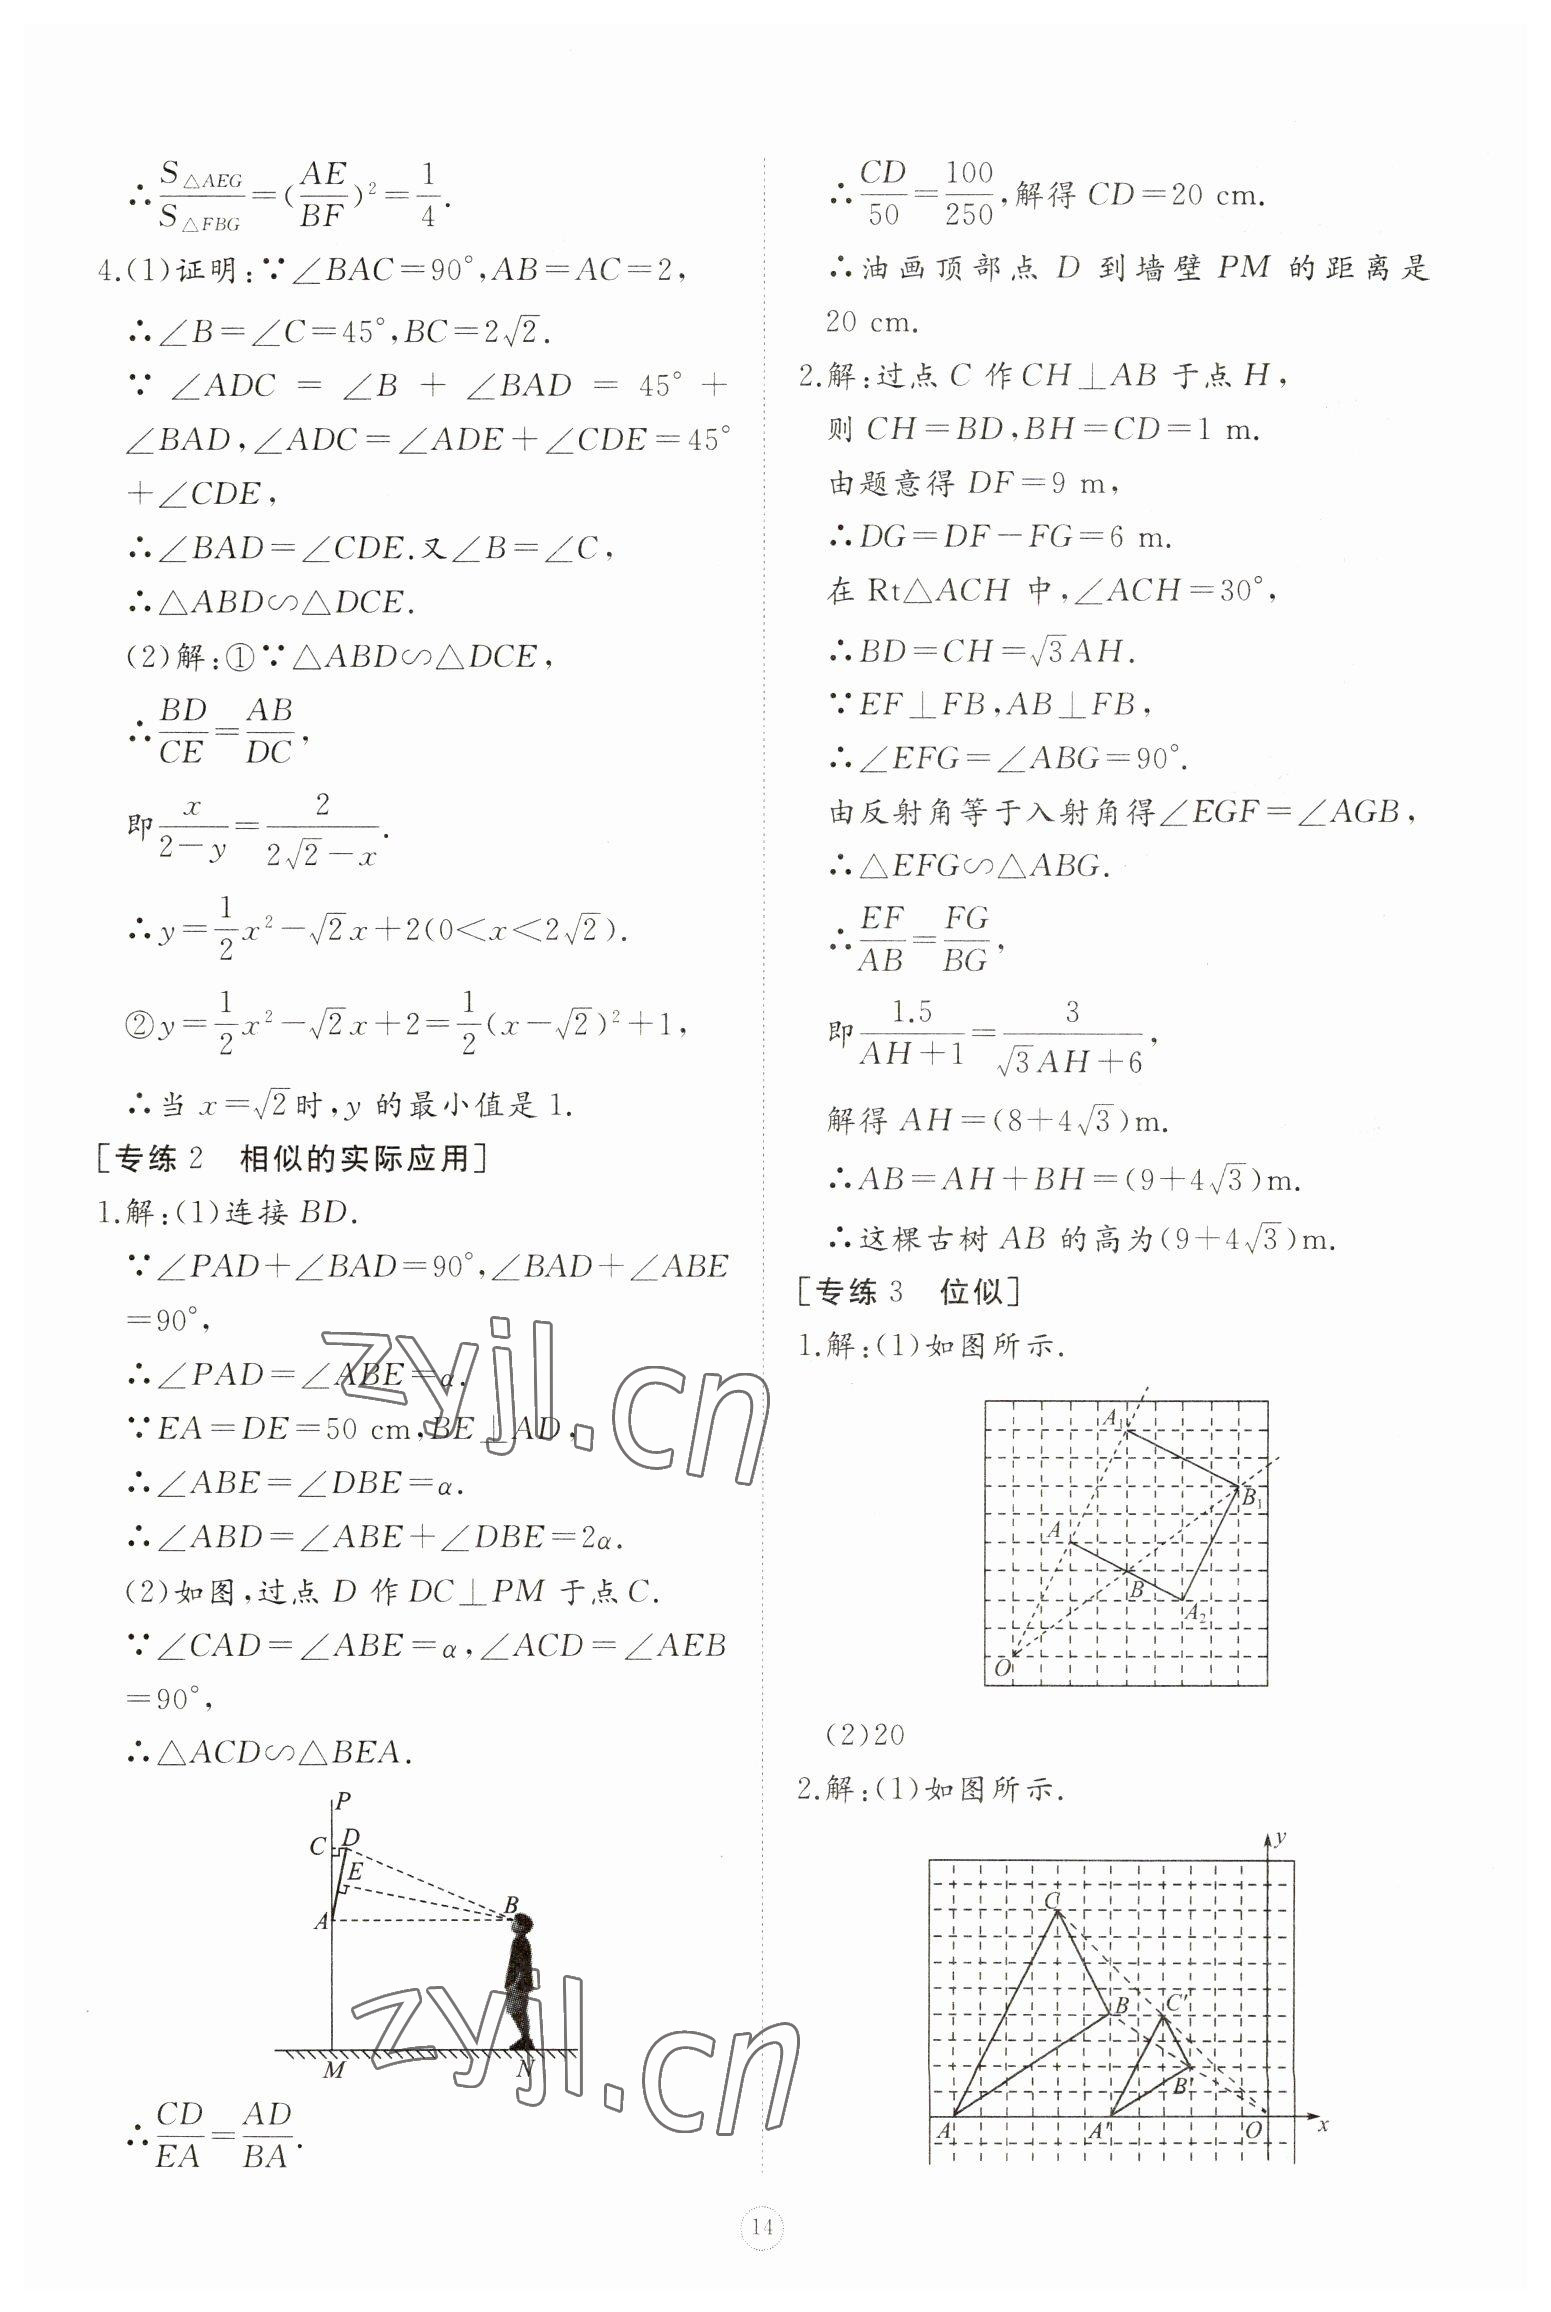 ∴S△AEG/S△FBG=(AE/BF)²=1/4.
4.(1)证明:∵∠BAC=90°,AB=AC=2,
∴∠B=∠C=45°,BC=2√2.
∵ ∠ADC = ∠B + ∠BAD = 45° +
∠BAD,∠ADC=∠ADE+∠CDE=45°
+∠CDE,
∴∠BAD=∠CDE.又∠B=∠C,
∴△ABD∽△DCE.
(2)解:①∵△ABD∽△DCE,
∴BD/CE=AB/DC,
即x/(2-y)=2/(2√2-x).
∴y=1/2x²-√2x+2(0<x<2√2).
②y=1/2x²-√2x+2=1/2(x-√2)²+1,
∴当x=√2时,y的最小值是1.
[专练2 相似的实际应用]
1.解:(1)连接BD.
∵∠PAD+∠BAD=90°,∠BAD+∠ABE
=90°,
∴∠PAD=∠ABE=α.
∵EA=DE=50 cm,BE⊥AD,
∴∠ABE=∠DBE=α.
∴∠ABD=∠ABE+∠DBE=2α.
(2)如图,过点D作DC⊥PM于点C.
∵∠CAD=∠ABE=α,∠ACD=∠AEB
=90°,
∴△ACD∽△BEA.
P
C
D
E
A
B
M
N
∴CD/EA=AD/BA.
∴CD/50=100/250,解得CD=20 cm.
∴油画顶部点D到墙壁PM的距离是
20 cm.
2.解:过点C作CH⊥AB于点H,
则CH=BD,BH=CD=1 m.
由题意得DF=9 m,
∴DG=DF-FG=6 m.
在Rt△ACH中,∠ACH=30°,
∴BD=CH=√3AH.
∵EF⊥FB,AB⊥FB,
∴∠EFG=∠ABG=90°.
由反射角等于入射角得∠EGF=∠AGB,
∴△EFG∽△ABG.
∴EF/AB=FG/BG,
即1.5/(AH+1)=3/(√3AH+6),
解得AH=(8+4√3)m.
∴AB=AH+BH=(9+4√3)m.
∴这棵古树AB的高为(9+4√3)m.
[专练3 位似]
1.解:(1)如图所示.
A₁
B₁
A
B
A₂
O
(2)20
2.解:(1)如图所示.
y
C
B
C′
B′
A
A′
O
x
zyjl.cn
zyjl.cn
14